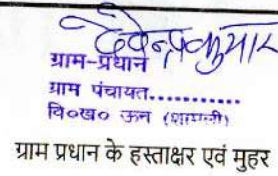 देवेन्द्र कुमार
ग्राम-प्रधान
ग्राम पंचायत............
वि०ख० ऊन (शामली)
ग्राम प्रधान के हस्ताक्षर एवं मुहर